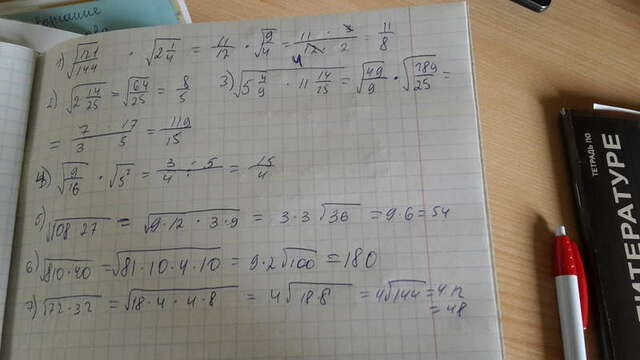 1) √121/144 · √2 1/4 = 11/12 · √9/4 = 11 · 3 / 12 · 2 = 11/8
4
2) √2 14/25 = √64/25 = 8/5
3) √5 4/9 · 11 14/25 = √49/9 · √289/25 =
= 7 · 17 / 3 5 = 119/15
4) √9/16 · √5² = 3 · 5 / 4 = 15/4
5) √108 27 = √9·12 · 3·9 = 3·3 √36 = 9·6 = 54
6) √810·40 = √81·10·4·10 = 9·2√100 = 180
7) √72·32 = √18·4 · 4·8 = 4√18·8 = 4√144 = 4·12
= 48
ТЕТРАДЬ ПО
ЛИТЕРАТУРЕ